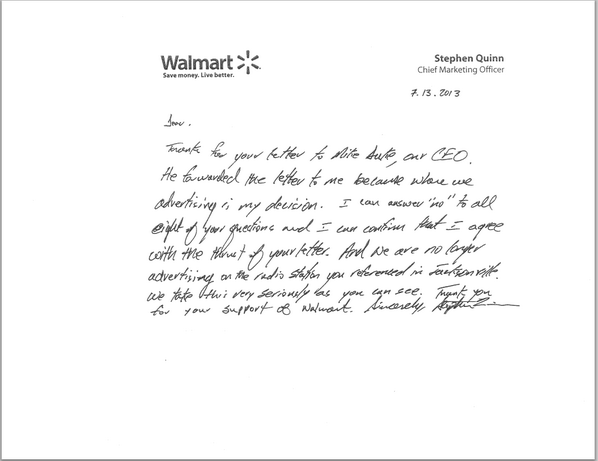 Walmart
Save money. Live better.
Stephen Quinn
Chief Marketing Officer
7.13.2013
Dear.
Thanks for your letter to Mike Duke, our CEO.
He forwarded the letter to me because where we
advertising is my decision. I can answer "no" to all
eight of your questions and I can confirm that I agree
with the thrust of your letter. And we are no longer
advertising on the radio station you referenced in Jacksonville.
We take this very seriously as you can see. Thank you
for your support of Walmart. Sincerely,